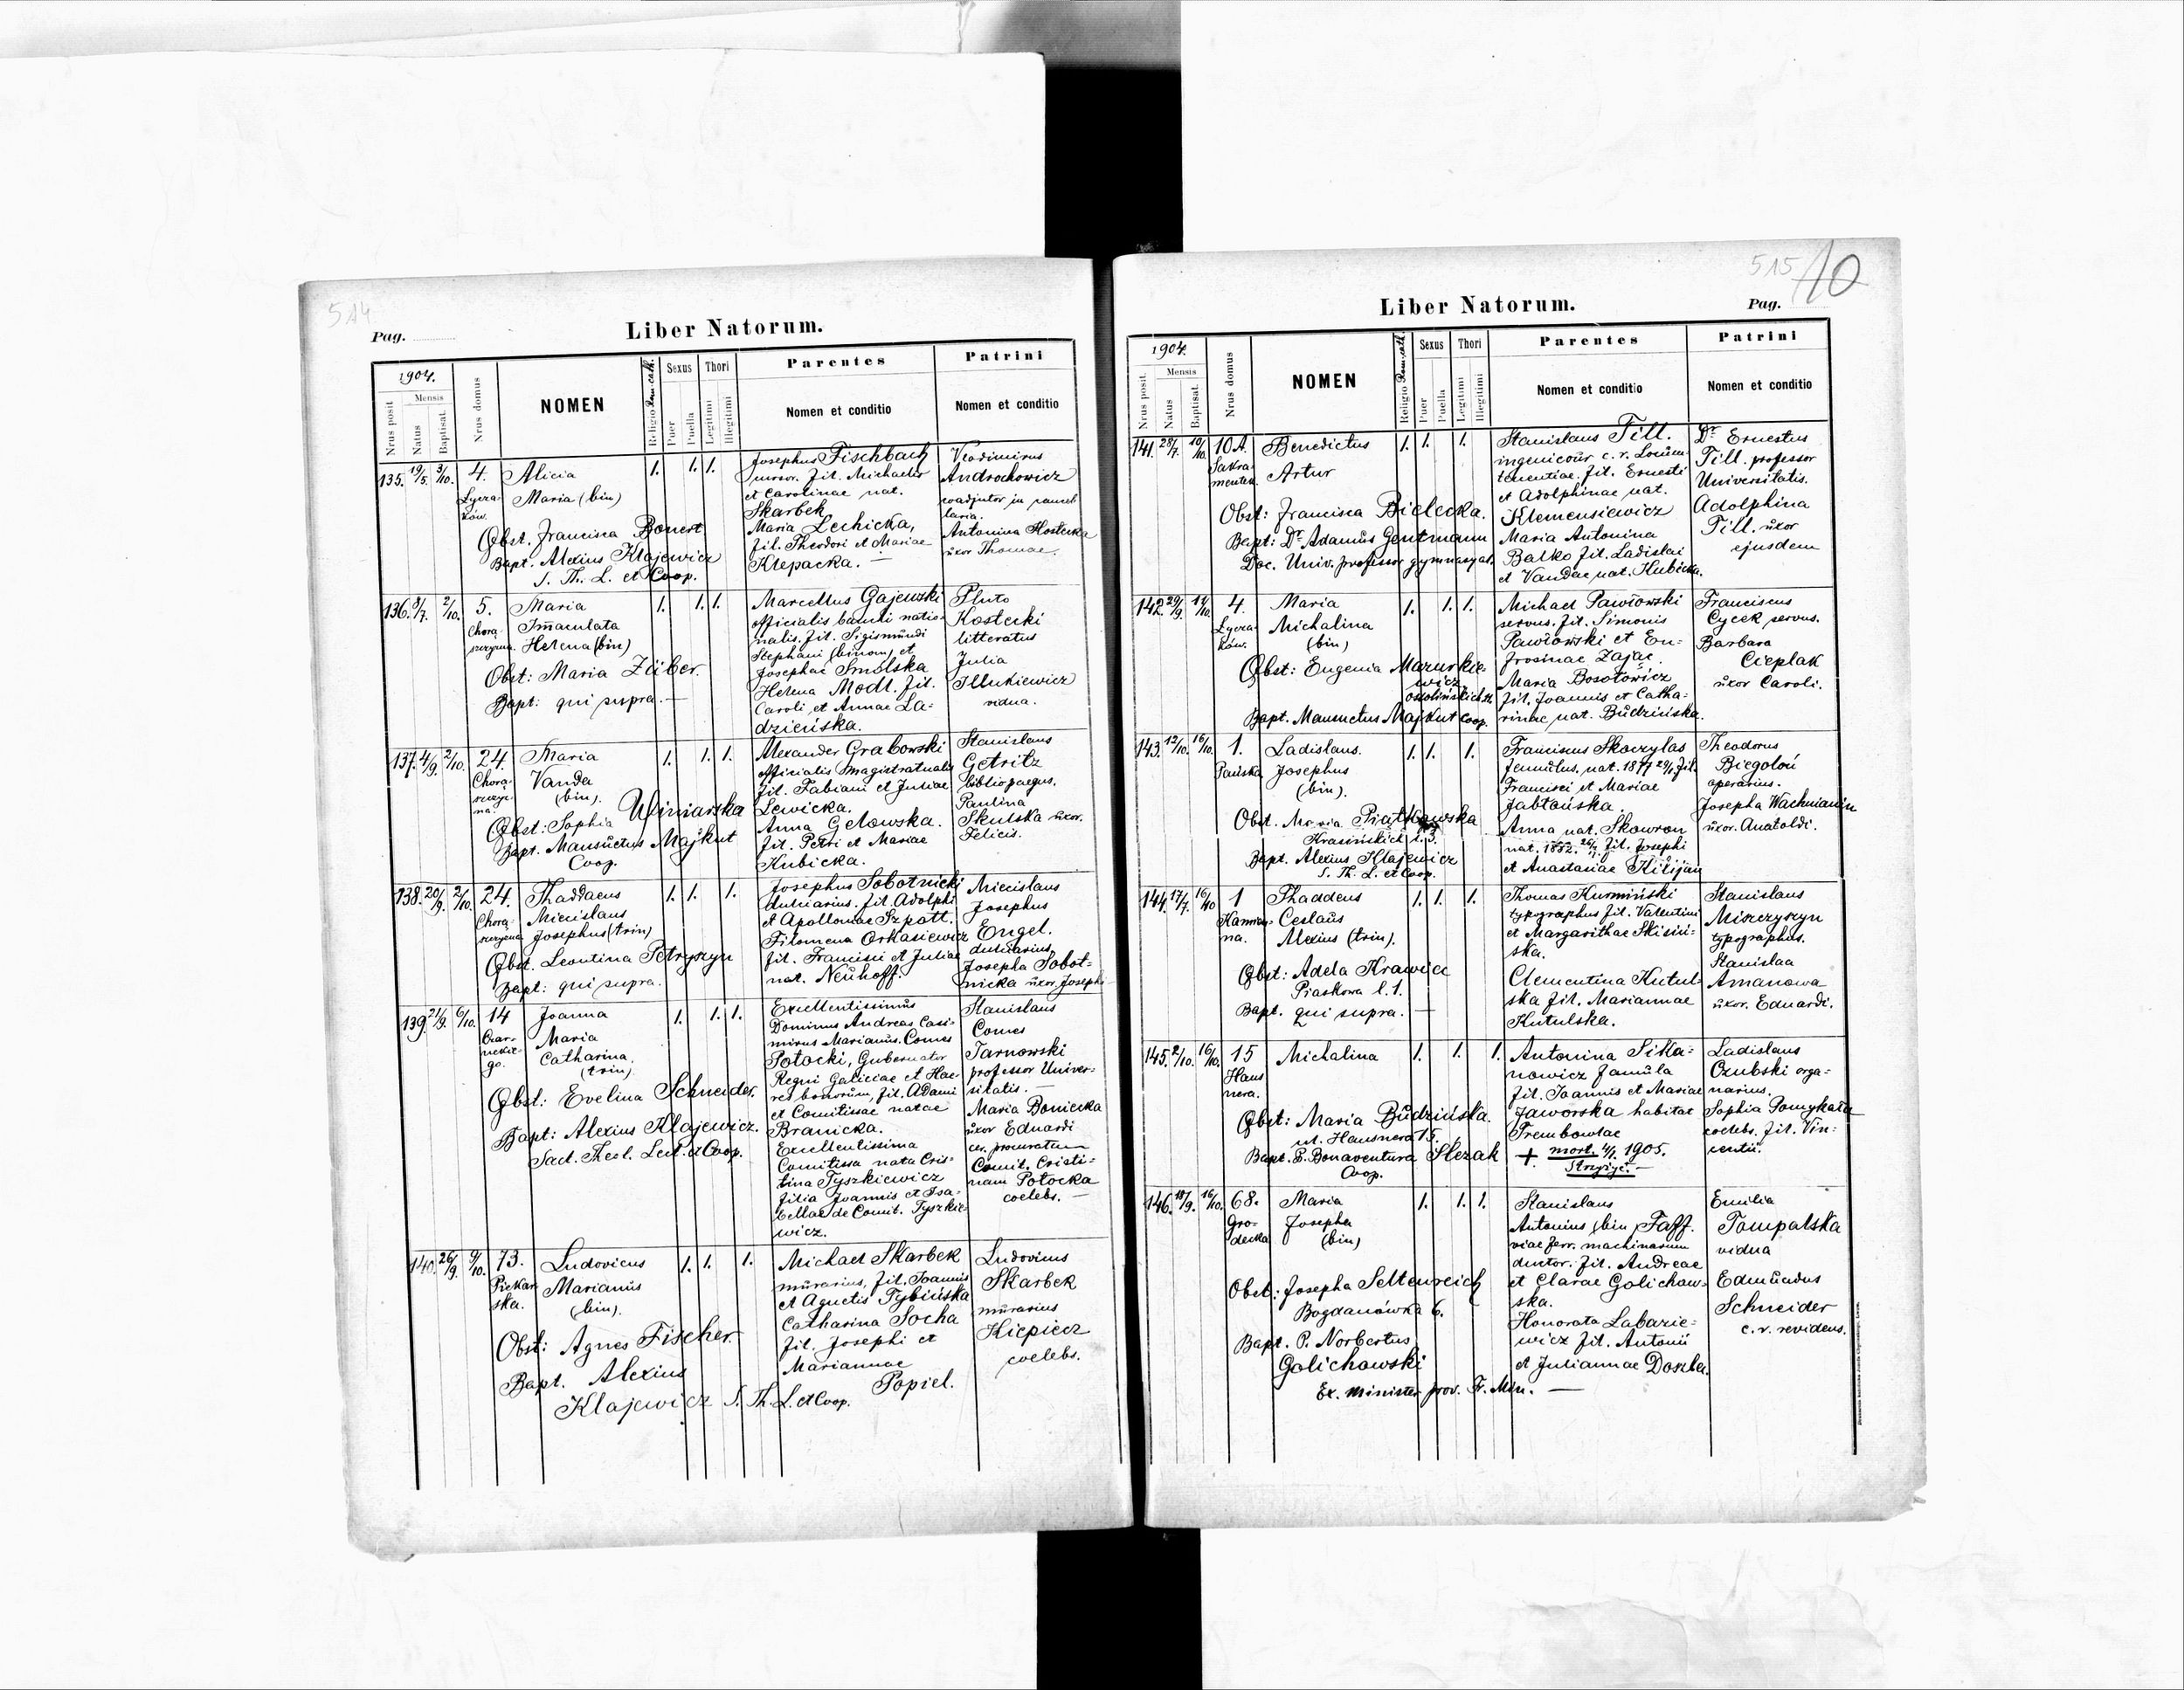 514
Pag.
Liber Natorum.
1904.
Mensis
Nrus posit
Natus
Baptisat.
Nrus domus
NOMEN
Religio Rom. cath.
Sexus
Puer
Puella
Thori
Legitimi
Illegitimi
Parentes
Nomen et conditio
Patrini
Nomen et conditio
135. 19/5. 3/10. 4. Łycza-ków.
Alicia
Maria (bin)
1. 1. 1.
Obst. Francisca Bonert
Bapt. Alexius Klajewicz
S. Th. L. et Coop.
Josephus Fischbach
fil. Michaelis
et Carolinae nat.
Skarbek
Maria Lechicka,
fil. Theodori et Mariae
Klepacka. —
Vladimirus
Androchowicz
coadjutor in cancel
laria.
Antonina Kostecka
uxor Thomae.
136. 8/7. 2/10. 5.
Maria
Immaculata
Helena (bin)
1. 1. 1.
Obst: Maria Züber.
Bapt: qui supra. —
Marcellus Gajewski
officialis banki natio-
nalis. fil. Sigismundi
Stephani (binom) et
Josephae Smolska
Helena Modl. fil.
Caroli et Annae La-
dzieńska.
Pluto
Kostecki
litteratus
Julia
Illukiewicz
vidua.
137. 4/9. 2/10. 24.
Maria
Vanda
(bin).
1. 1. 1.
Obst: Sophia Winiarska
Bapt. Mansuetus Majkut
Coop.
Alexander Grabowski
officialis magistratualis
fil. Fabiani et Juliae
Lewicka.
Anna Gelowska.
fil. Petri et Mariae
Kubicka.
Stanislaus
Getritz
bibliopaegus.
Paulina
Skulska uxor.
Felicis.
138. 20/9. 2/10. 24.
Thaddaeus
Miecislaus
Josephus (trin)
1. 1. 1.
Obst. Leontina Petryszyn
Bapt: qui supra.
Josephus Sobotnicki
dulciarius. fil. Adolphi
et Apolloniae Szpatt.
Filomena Orkasiewicz
fil. Francisci et Juliae
nat. Neuhoff.
Miecislaus
Josephus
Engel.
dulciarius
Josepha Sobot-
nicka uxor Josephi
139. 21/9. 6/10. 14
Czar-
neckie-
go.
Joanna
Maria
Catharina.
(trin)
1. 1. 1.
Obst: Evelina Schneider.
Bapt: Alexius Klajewicz.
Sact. Theol. Lect. et Coop.
Excellentissimus
Dominus Andreas Casi-
mirus Marianus. Comes
Potocki, Gubernator
Regni Galiciae et Hae-
res bonorum, fil. Adami
et Comitissae natae
Branicka.
Excellentissima
Comitissa nata Cris-
tina Tyszkiewicz
filia Joannis et Isa-
bellae de Comit. Tyszkie-
wicz.
Stanislaus
Comes
Tarnowski
professor Univer-
sitatis. —
Maria Boniecka
uxor Eduardi
per procuratam
Comit. Cristi-
nam Potocka
coelebs. —
140. 26/9. 9/10. 73.
Piekar
ska.
Ludovicus
Marianus
(bin).
1. 1. 1.
Obst: Agnes Fischer.
Bapt. Alexius
Klajewicz S. Th. L. et Coop.
Michael Skarbek
murarius, fil. Joannis
et Agnetis Tybińska
Catharina Socha
fil. Josephi et
Mariannae
Popiel.
Ludovicus
Skarbek
murarius
Kiepiecz
coelebs.
515/10
Liber Natorum.
Pag.
1904.
Mensis
Nrus posit.
Natus
Baptisat.
Nrus domus
NOMEN
Religio Rom. cath.
Sexus
Puer
Puella
Thori
Legitimi
Illegitimi
Parentes
Nomen et conditio
Patrini
Nomen et conditio
141. 28/7. 10/10. 10A.
Sakra-
mentek
Benedictus
Artur
1. 1. 1.
Obst: Francisca Bielecka.
Bapt: Dr. Adamus Gentmann
Doc. Univ. professor gymnasyal.
Stanislaus Till.
ingenieur c. r. Locum-
tenentiae. fil. Ernesti
et Adolphinae nat.
Klemensiewicz
Maria Antonina
Balko fil. Ladislai
et Vandae nat. Kubicka.
Dr. Ernestus
Till. professor
Universitatis.
Adolphina
Till. uxor
ejusdem
142. 29/9. 4.
Łycza-
ków.
Maria
Michalina
(bin)
1. 1. 1.
Obst: Eugenia Mazurkie-
wicz
Ossolińskich
Bapt. Mansuetus Majkut Coop.
Michael Pawłowski
servus. fil. Simonis
Pawłowski et Eu-
frosinae Zając.
Maria Bosołowicz
fil. Joannis et Catha-
rinae nat. Budzińska.
Franciscus
Cycek servus.
Barbara
Cieplak
uxor Caroli.
143. 12/10. 16/10. 1.
Pańska
Ladislaus.
Josephus
(bin).
1. 1. 1.
Obst. Maria Piątkowska
Krasińskich l. 3.
Bapt. Alexius Klajewicz
S. Th. L. et Coop.
Franciscus Skoczylas
famulus. nat. 1877 29/1 fil.
Francisci et Mariae
Jabłońska.
Anna nat. Skowron
nat. 1882. fil. Josephi
et Anastasiae Kilijan
Theodorus
Biegoloń
operarius.
Josepha Wachnianin
uxor. Anatoldi.
144. 17/7. 16/10 1
Kamien-
na.
Thaddeus
Ceslaus
Alexius (trin).
1. 1. 1.
Obst: Adela Krawicz
Piaskowa l. 1.
Bapt. qui supra. —
Thomas Kurmiński
typographus fil. Valentini
et Margarithae Skisiń-
ska.
Clementina Kutul-
ska fil. Mariannae
Kutulska.
Stanislaus
Misczyszyn
typographus.
Stanislaa
Amanowa
uxor. Eduardi.
145. 2/10. 16/10. 15
Haus
nera.
Michalina
1. 1. 1.
Obst: Maria Budzińska.
ul. Hausnera 15.
Bapt. P. Bonaventura Slezak
Coop.
Antonina Sika-
nowicz famula
fil. Joannis et Mariae
Jaworska habitat
Trembowlae
+ mort. 4/1. 1905.
Ladislaus
Czubski orga-
narius.
Sophia Pomykała
coelebs. fil. Vin-
centii.
146. 18/9. 16/10. 68.
Gro-
decka
Maria
Josepha
(bin)
1. 1. 1.
Obst: Josepha Seltenreich
Bogdanówka 6.
Bapt. P. Norbertus
Golichowski
Ex. minister prov. Fr. Min. —
Stanislaus
Antonius (bin) Faff.
viae ferr. machinarum
ductor. fil. Andreae
et Clarae Golichow-
ska.
Honorata Labazie-
wicz fil. Antonii
et Juliannae Doscha.
Emilia
Pompalska
vidua
Edmundus
Schneider
c. r. revidens.